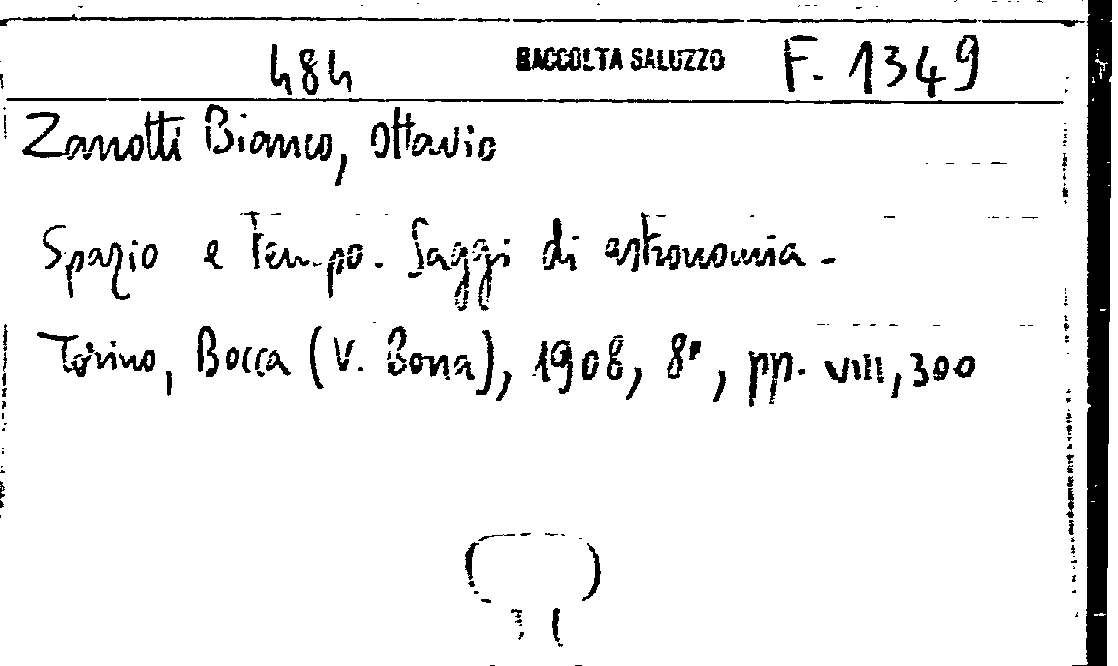 484 RACCOLTA SALUZZO F. 1349
Zanotti Bianco, Ottavio
Spazio e Tempo. Saggi di astronomia -
Torino, Bocca (V. Bona), 1908, 8°, pp. VIII, 300